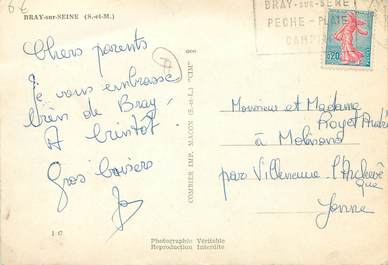 6€
BRAY-sur-SEINE (S.-et-M.)
BRAY-SUR-SEINE
PECHE - PLAGE
CAMPING
0,20
Chers parents
Je vous embrasse
bien de Bray,
A bientôt.
Gros baisers
COMBIER IMP. MACON (S.-et-L.) "CIM"
Monsieur et Madame
Royer André
à Molinons
par Villeneuve l'Archevê
que
Yonne
1 C
Photographie Véritable
Reproduction Interdite